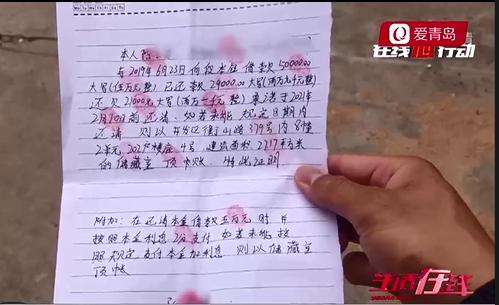 爱青岛
在线 行动
本人陈
在2019年6月23日向段本住借款50000.00
大写(伍万元整)已还款29000.00大写(两万九千元整)
还欠21000元大写(两万一千元整)承诺于2021年
2月10日前还清、如若未能规定日期内
还清 则以开发区衡山路379号内8幢
2单元202户楼座4号 建筑面积23.17平方米
的储藏室 顶帐账. 特此证明
附加:在还请本金借款五万元时 并
按照本金利息2分支付 如若未能按
照规定支付本金加利息 则以储藏室
顶帐
生活在线